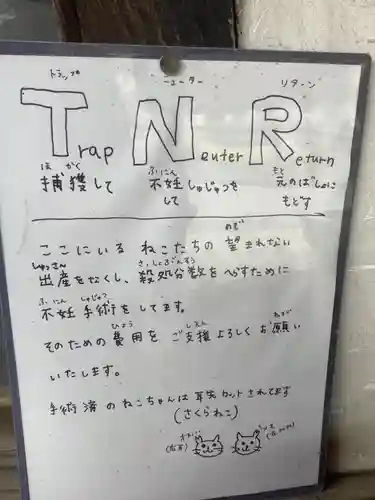 トラップ ニューター リターン
Trap Neuter Return
ほかく ふにん もと
捕獲して 不妊しゅじゅつを 元のばしょに
して もどす
のぞ
ここにいる ねこたちの 望まれない
しゅっさん さっしょぶんすう
出産をなくし、殺処分数をへらすために
ふにん しゅじゅつ
不妊手術をしてます。
ひよう しえん ねが
そのための費用をご支援よろしくお願い
いたします。
手術済のねこちゃんは耳先カットされてます
(さくらねこ)
オス メス
(右耳) (左耳)